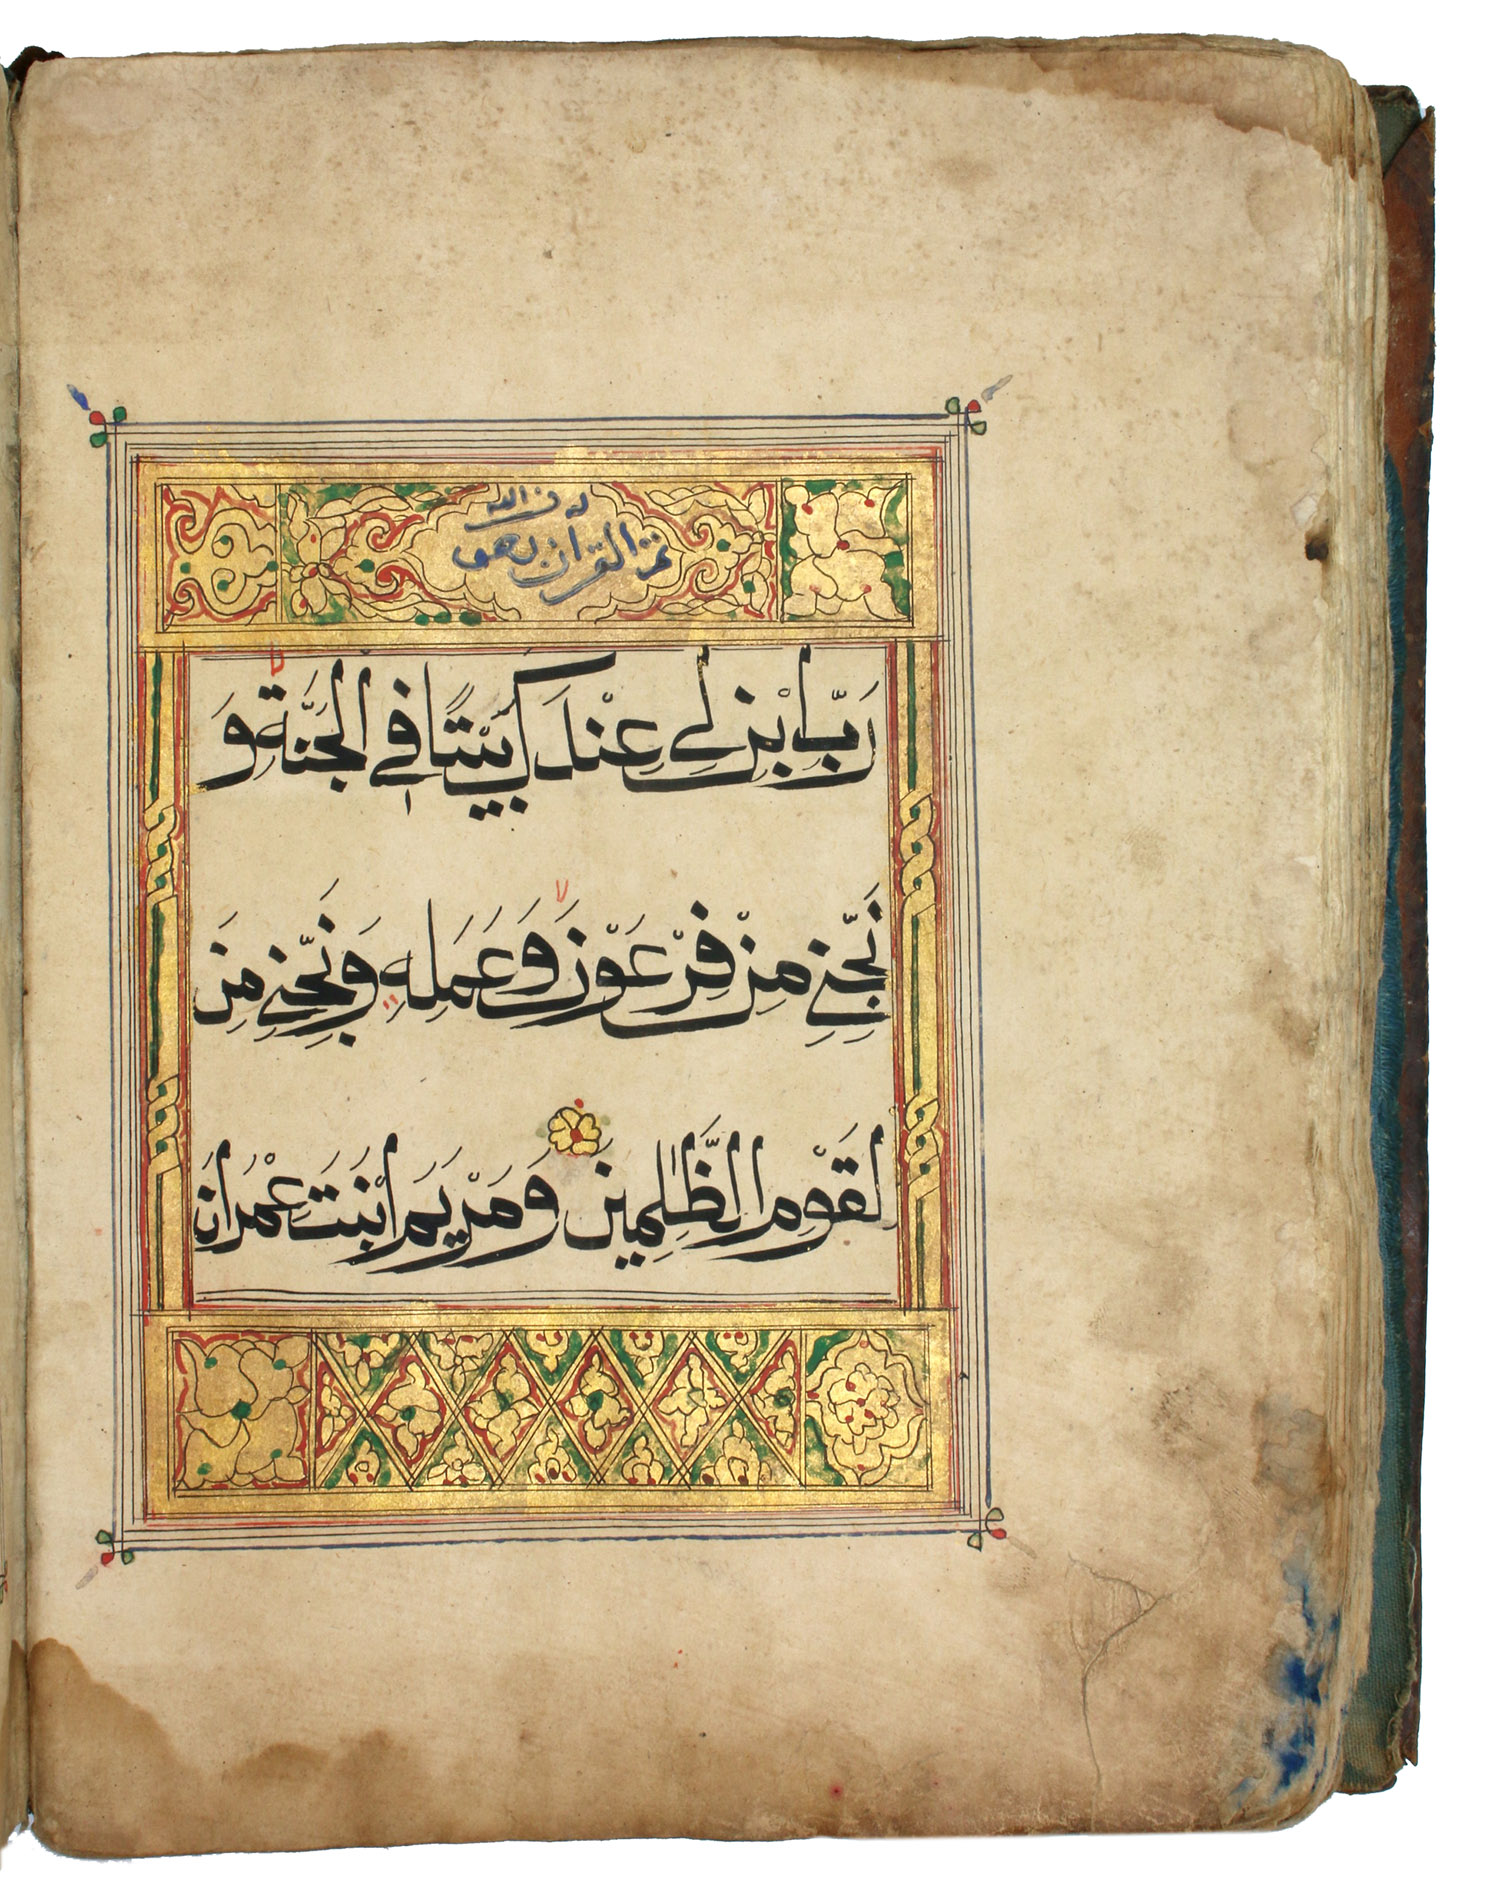 تمت القرآن بعون
الله
رَبِّ ابْنِ لِي عِنْدَكَ بَيْتًا فِي الْجَنَّةِ وَ
نَجِّنِي مِنْ فِرْعَوْنَ وَعَمَلِهِ وَنَجِّنِي مِنَ
الْقَوْمِ الظَّٰلِمِينَ وَمَرْيَمَ ابْنَتَ عِمْرَانَ